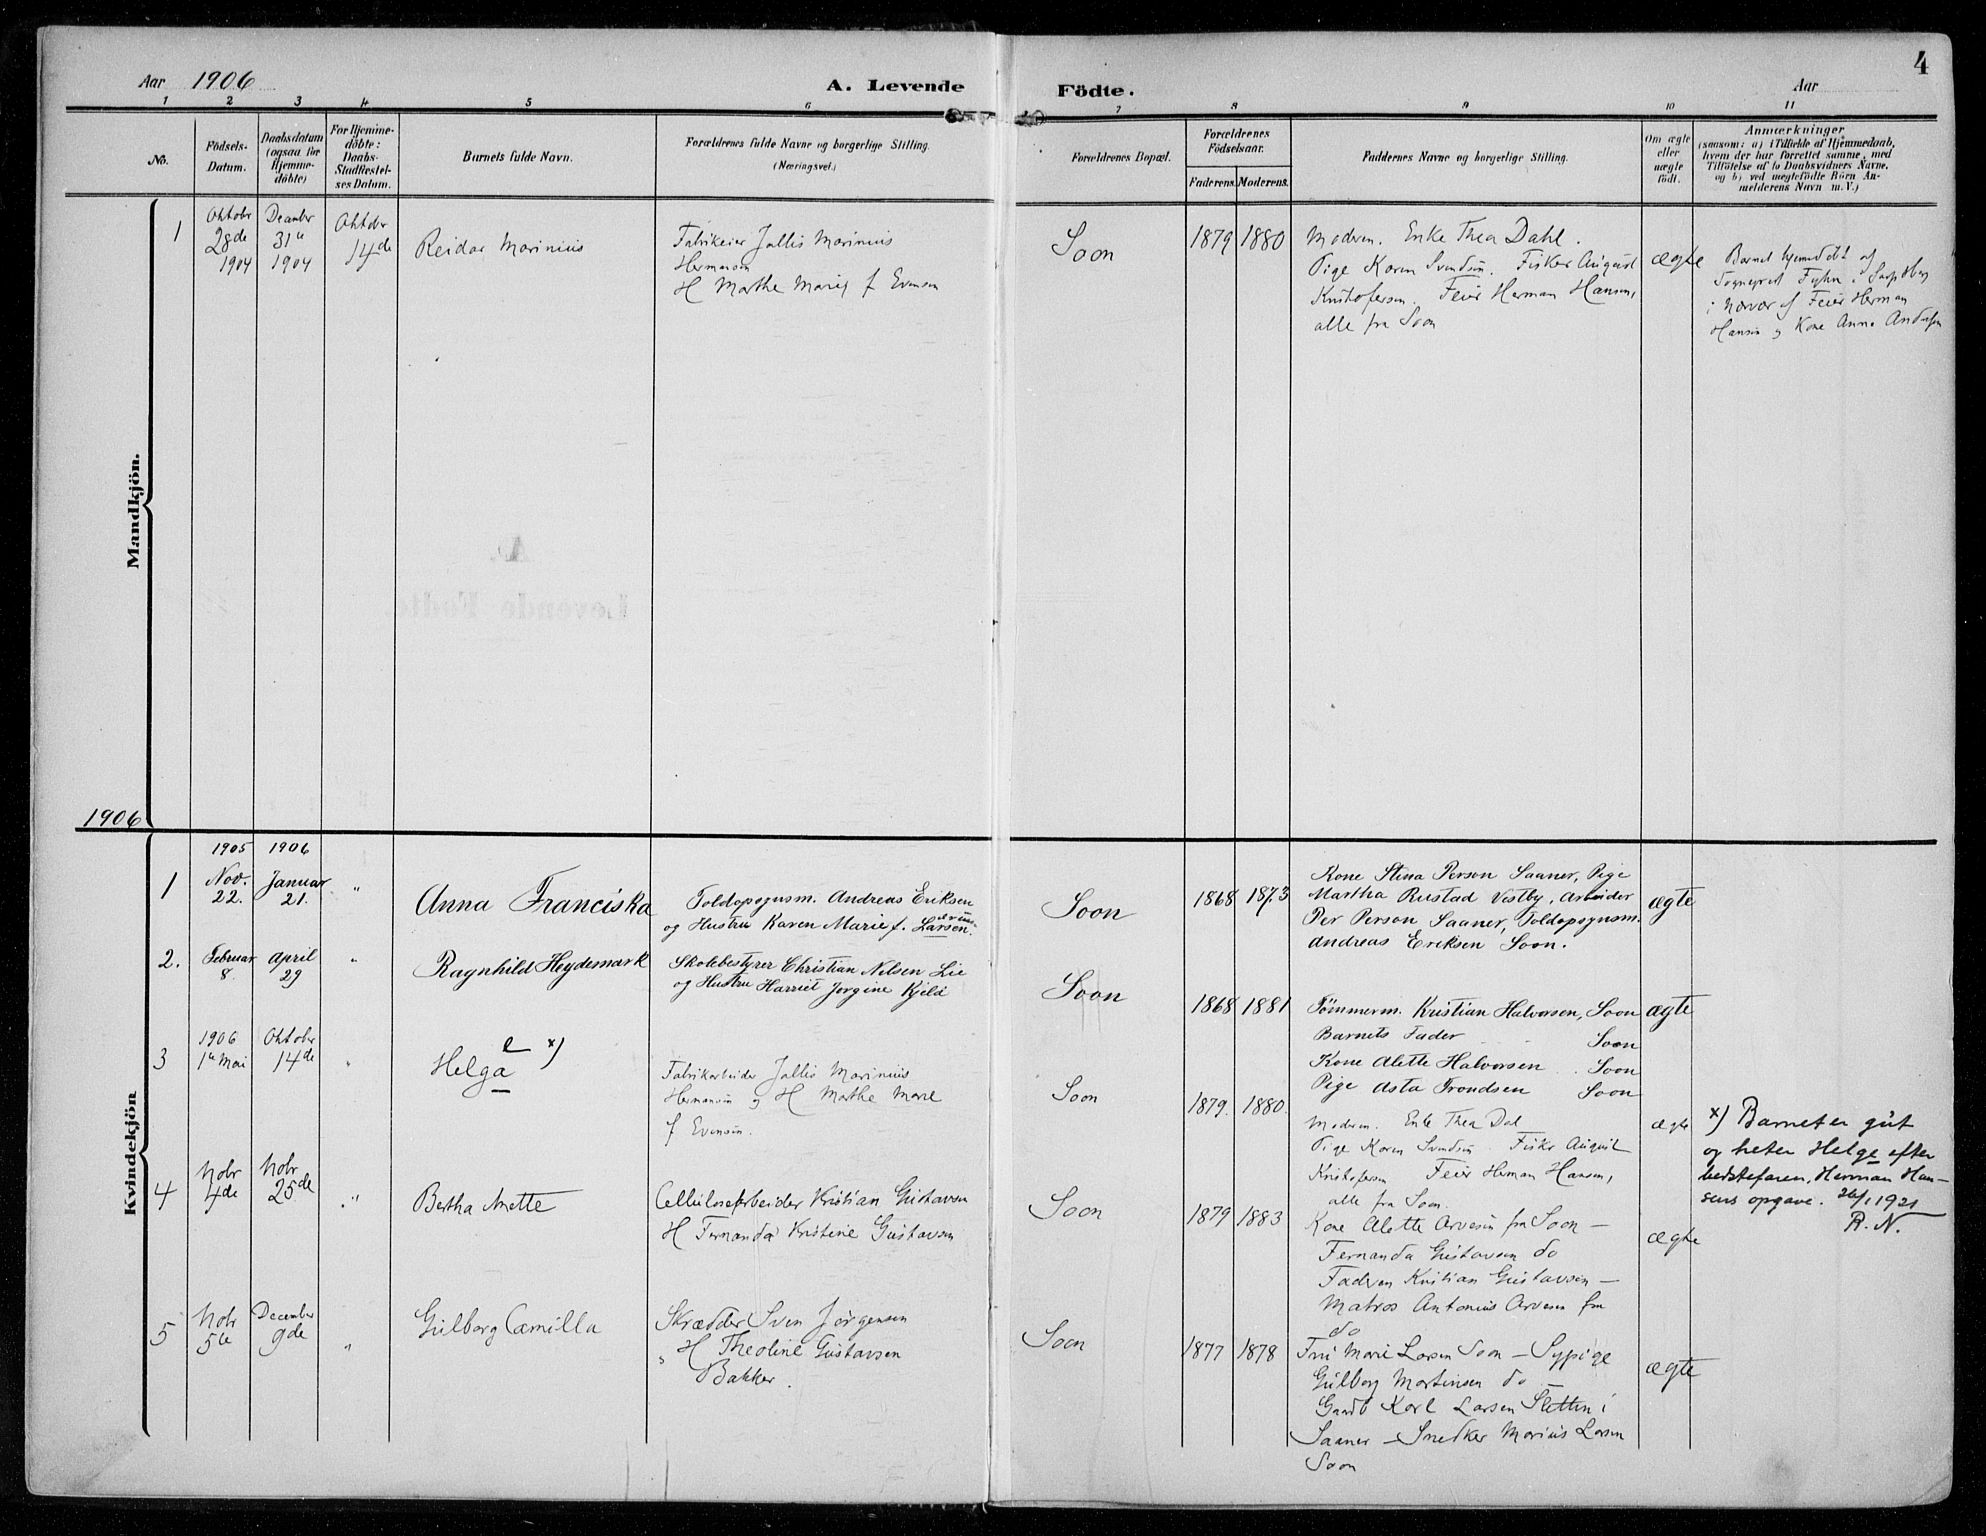 4
Aar 1906
A. Levende Födte.
Aar
1 2 3 4 5 6 7 8 9 10 11
No.
Födsels-
Datum.
Daabsdatum
(ogsaa for
Hjemme-
döbte)
For Hjemme-
döbte:
Daabs-
Stadfæstel-
ses Datum.
Barnets fulde Navn.
Forældrenes fulde Navne og borgerlige Stilling.
(Næringsvei.)
Forældrenes Bopæl.
Forældrenes
Födselsaar.
Faderens. Moderens.
Faddernes Navne og borgerlige Stilling.
Om ægte
eller
uægte
födt.
Anmærkninger
(saasom: a) i Tilfælde af Hjemmedaab,
hvem der har forrettet samme, med
Tilföielse af to Daabsvidners Navne,
og b) ved uægtefödte Börn An-
melderens Navn m. V.)
Mandkjön.
1
Oktobr
28de
1904
December
31te
1904
Oktobr
14de
Reidar Marinius
Jallis Marinius
Hermansen
H Marthe Marie f Evensen
Soon
1879 1880
Moderen. Enke Thea Dahl.
Pige Karen Svendsen. Fisker August
Kristofersen. Feier Herman Hansen,
alle fra Soon
ægte
Barnet hjemdøbt af
Sogneprest Fyhn i Sarpsborg
i Nærvær af Feier Herman
Hansen og Kone Anna Andersen
1906
Kvindekjön
1905 1906
1
Nov.
22.
Januar
21.
"
Anna Franciska
Toldopsynsm. Andreas Eriksen
og Hustru Karen Marie f. Larsen.
Soon
1868 1873
Kone Stina Person Saaner, Pige
Martha Rustad Vestby, Arbeider
Per Person Saaner, Toldopsynsm.
Andreas Eriksen Soon.
ægte
2.
Februar
8.
April
29
"
Ragnhild Heydemark
Skolebestyrer Christian Nilsen Lie
og Hustru Harriet Jørgine Kjeld
Soon
1868 1881
Tømmerm. Kristian Halvorsen, Soon
Barnets Fader Soon
Kone Alette Halvorsen Soon
Pige Asta Trondsen Soon
ægte
3
1906
1te Mai
Oktober
14de
"
e x)
Helga
Fabrikarbeider Jallis Marinius
Hermansen og H Marthe Marie
f Evensen.
Soon
1879. 1880.
Moderen. Enke Thea Dal
Pige Karen Svendsen. Fisker August
Kristofersen Feier Herman Hansen,
alle fra Soon.
ægte
x) Barnet er gut
og heter Helge efter
bedstefaren, Herman Han-
sens opgave. 26/1 1921
R. N.
4
Nobr
4de
Nobr
25de
"
Bertha Anette
Cellulosearbeider Kristian Gustavsen
H Fernanda Kristine Gustavsen
Soon
1879 1883
Kone Alette Arvesen fra Soon —
Fernanda Gustavsen do
Faderen Kristian Gustavsen —
Matros Antonius Arvesen fra
do
ægte
5
Nobr
5te
December
9de
"
Gulborg Camilla
Skrædder Sven Jørgensen
" H Theoline Gustavsen
Bakker.
Soon
1877 1878
Fru Marie Larsen Soon — Sypige
Gulborg Martinsen do
Gaardb Karl Larsen Sletten i
Saaner — Snedker Marius Larsen
Soon
ægte